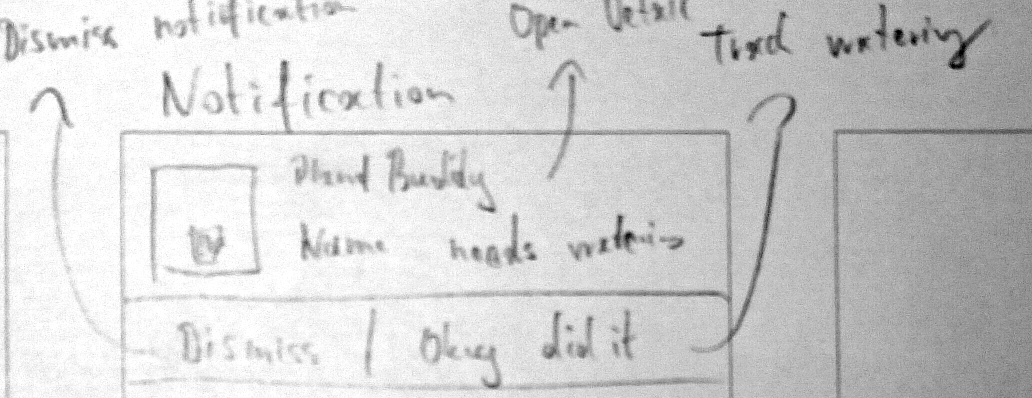 Dismiss notification
Open Detail
Track watering
Notification
Plant Buddy
Name needs watering
Dismiss / Okay did it